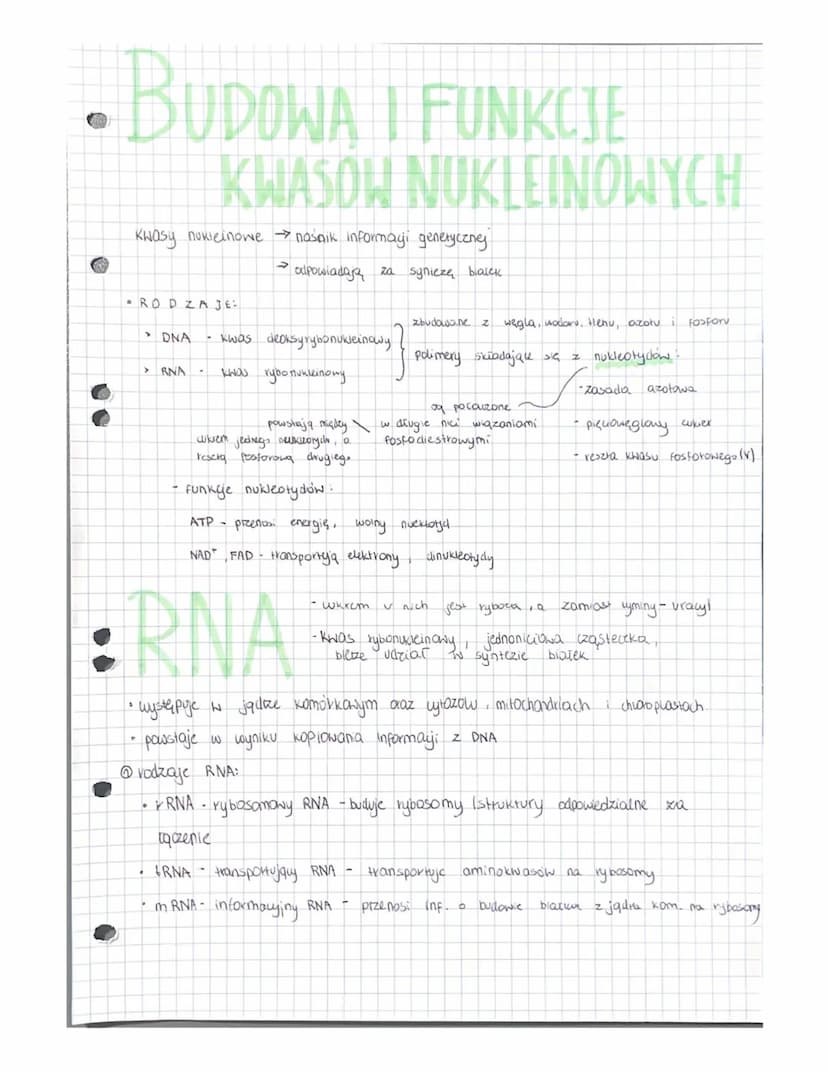 BUDOWA I FUNKCJE
KWASÓW NUKLEINOWYCH
Kwasy nukleinowe → nośnik informacji genetycznej
→ odpowiadają za syntezę białek
• RODZAJE:
> DNA - kwas deoksyrybonukleinowy
> RNA - kwas rybonukleinowy
zbudowane z węgla, wodoru, tlenu, azotu i fosforu
polimery składające się z nukleotydów:
- zasada azotowa
- pięciowęglowy cukier
- reszta kwasu fosforowego (V)
są połączone
w długie nici wiązaniami
fosfodiestrowymi
powstają między
cukrem jednego, a
resztą fosforową drugiego
- funkcje nukleotydów:
ATP - przenosi energię, wolny nukleotyd
NAD⁺, FAD - transportują elektrony, dinukleotydy
RNA
- cukrem w nich jest ryboza, a zamiast tyminy - uracyl
- kwas rybonukleinowy, jednoniciowa cząsteczka,
bierze udział w syntezie białek
• występuje w jądrze komórkowym oraz cytozolu, mitochondriach i chloroplastach
• powstaje w wyniku kopiowana informacji z DNA
rodzaje RNA:
• rRNA - rybosomowy RNA - buduje rybosomy (struktury odpowiedzialne za
łączenie
• tRNA - transportujący RNA - transportuje aminokwasów na rybosomy
• mRNA - informacyjny RNA - przenosi inf. o budowie białka z jądra kom. na rybosomy